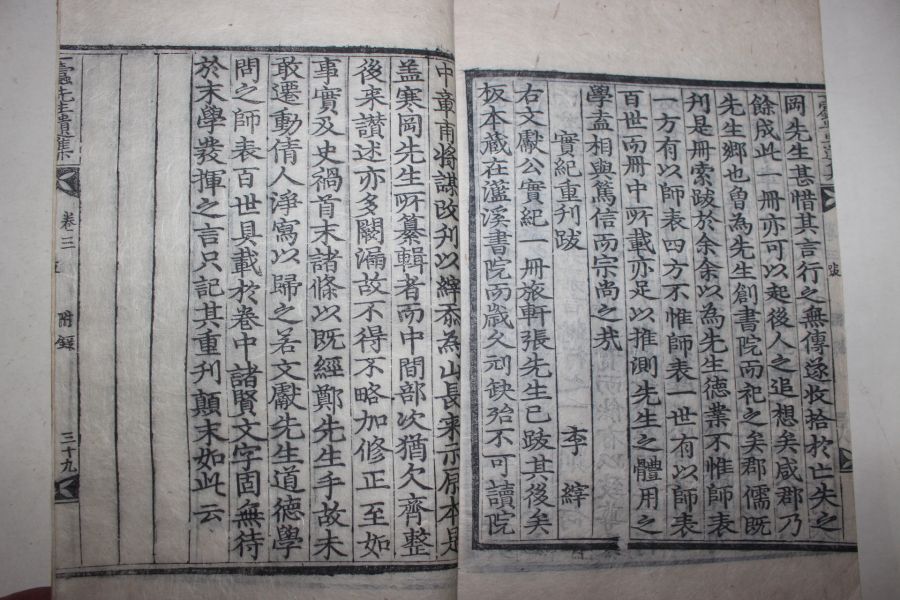 岡先生甚惜其言行之無傳遂收拾於亡失之
餘成此一冊亦可以起後人之追想矣咸郡乃
先生鄉也曾為先生創書院而祀之矣郡儒既
刋是冊索跋於余余以為先生德業不惟師表
一方有以師表四方不惟師表一世有以師表
百世而冊中所載亦足以推測先生之體用之
學盍相與篤信而宗尚之㢤
實紀重刋跋 李縡
右文獻公實紀一冊旅軒張先生已跋其後矣
板本藏在灆溪書院而歲久刓缺殆不可讀院
中童甫將謀改刋以縡忝為山長来示原本是
盖寒岡先生所纂輯者而中間部次猶欠齊整
後来讃述亦多闕漏故不得不略加修正至如
事實及史禍首末諸條以既經鄭先生手故未
敢遷動倩人淨寫以歸之若文獻先生道德學
問之師表百世具載於卷中諸賢文字固無待
於末學發揮之言只記其重刋顛末如此云
一蠹先生遺集 卷三 附錄 三十九